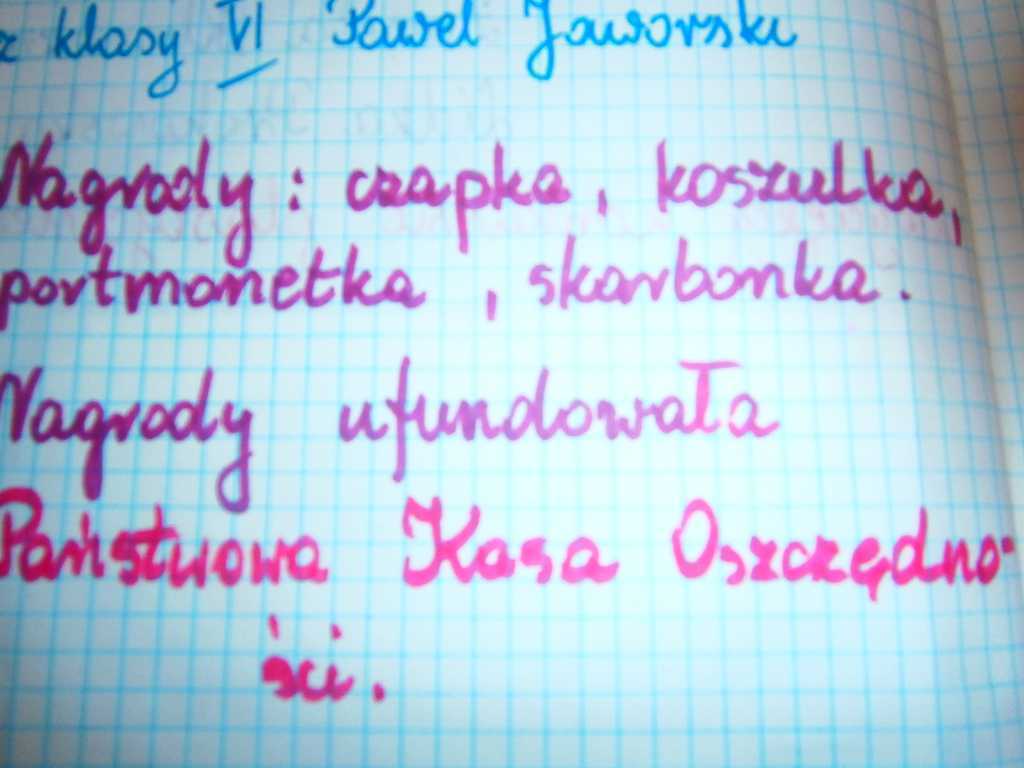 z klasy VI Paweł Jaworski
Nagrody: czapka, koszulka,
portmonetka, skarbonka.
Nagrody ufundowała
Państwowa Kasa Oszczędno-
ści.